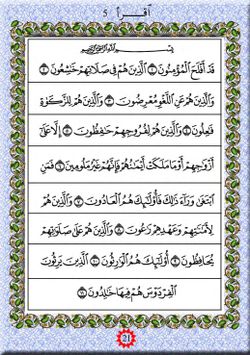 أقرأ 5
بِسْمِ اللَّهِ الرَّحْمَٰنِ الرَّحِيمِ
قَدْ أَفْلَحَ الْمُؤْمِنُونَ ۝ الَّذِينَ هُمْ فِي صَلَاتِهِمْ خَاشِعُونَ ۝
وَالَّذِينَ هُمْ عَنِ اللَّغْوِ مُعْرِضُونَ ۝ وَالَّذِينَ هُمْ لِلزَّكَوٰةِ
فَاعِلُونَ ۝ وَالَّذِينَ هُمْ لِفُرُوجِهِمْ حَافِظُونَ ۝ إِلَّا عَلَىٰ
أَزْوَاجِهِمْ أَوْ مَا مَلَكَتْ أَيْمَانُهُمْ فَإِنَّهُمْ غَيْرُ مَلُومِينَ ۝ فَمَنِ
ابْتَغَىٰ وَرَاءَ ذَٰلِكَ فَأُولَٰئِكَ هُمُ الْعَادُونَ ۝ وَالَّذِينَ هُمْ
لِأَمَانَاتِهِمْ وَعَهْدِهِمْ رَاعُونَ ۝ وَالَّذِينَ هُمْ عَلَىٰ صَلَوَاتِهِمْ
يُحَافِظُونَ ۝ أُولَٰئِكَ هُمُ الْوَارِثُونَ ۝ الَّذِينَ يَرِثُونَ
الْفِرْدَوْسَ هُمْ فِيهَا خَالِدُونَ ۝
21